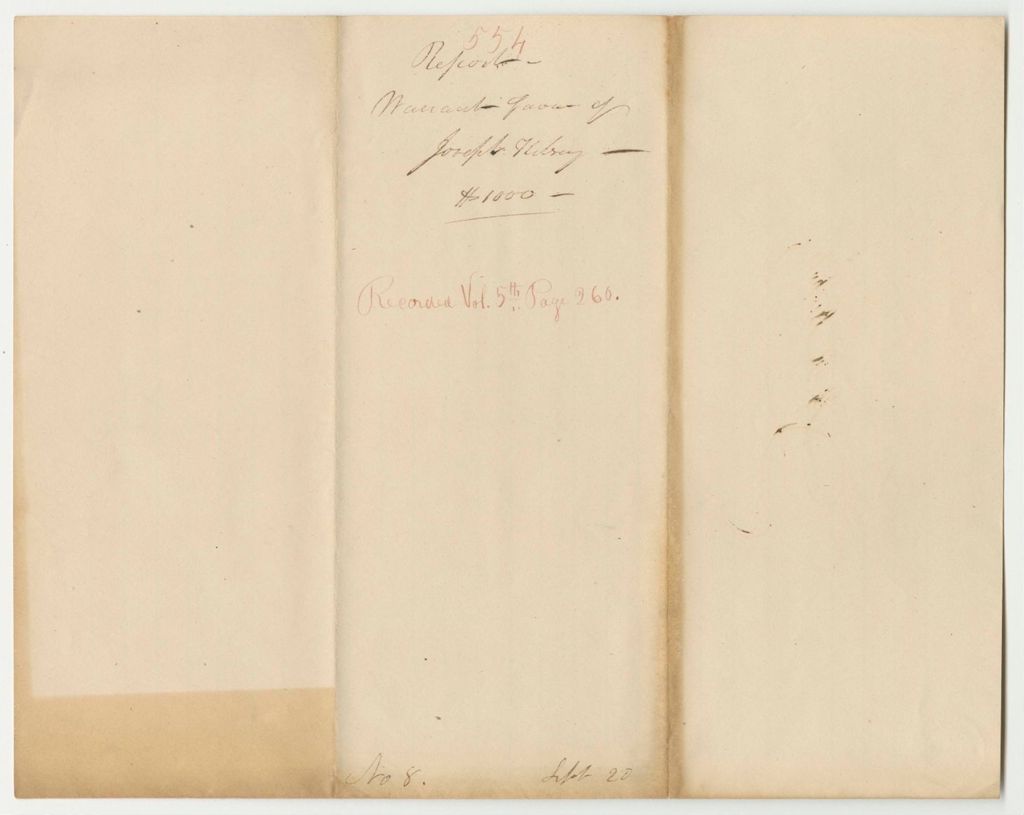 554
Report -
Warrant favor of
Joseph Kelsey —
$1000 —
Recorded Vol. 5th Page 260.
No 8. Sept 20